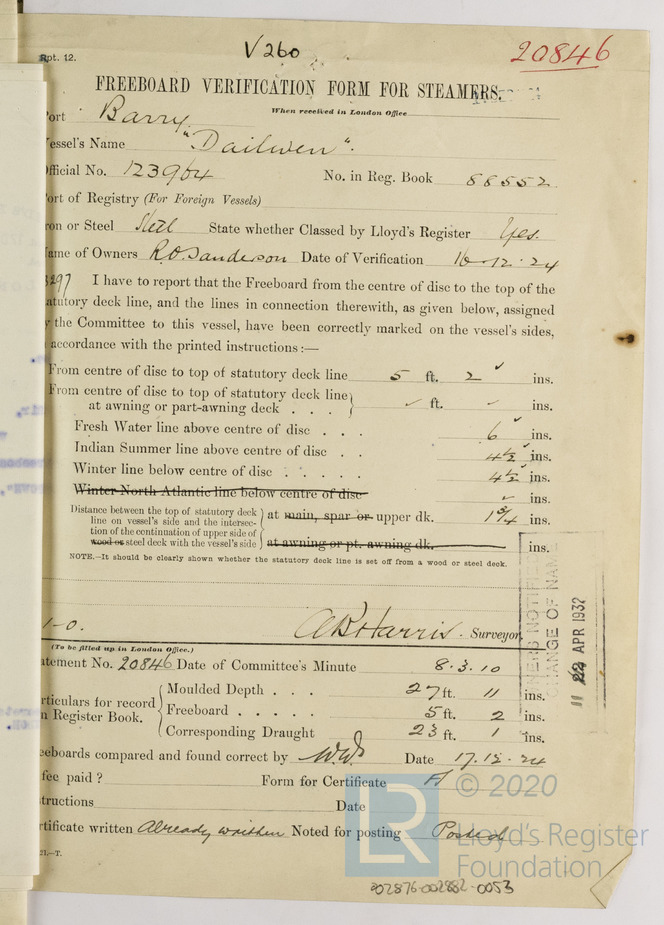 Rpt. 12.
V260
20846
FREEBOARD VERIFICATION FORM FOR STEAMERS.
When received in London Office
ort Barry
essel's Name "Dailwen".
fficial No. 123964 No. in Reg. Book 88552
ort of Registry (For Foreign Vessels)
ron or Steel Steel State whether Classed by Lloyd's Register Yes.
ame of Owners R.O. Sanderson Date of Verification 16-12-24
3297 I have to report that the Freeboard from the centre of disc to the top of the
atutory deck line, and the lines in connection therewith, as given below, assigned
y the Committee to this vessel, have been correctly marked on the vessel's sides,
accordance with the printed instructions :—
From centre of disc to top of statutory deck line 5 ft. 2 ins.
From centre of disc to top of statutory deck line
at awning or part-awning deck . . . ft. ins.
Fresh Water line above centre of disc . . . 6 ins.
Indian Summer line above centre of disc . . 4½ ins.
Winter line below centre of disc . . . . . 4½ ins.
Winter North Atlantic line below centre of disc ins.
Distance between the top of statutory deck
line on vessel's side and the intersec-
tion of the continuation of upper side of
wood or steel deck with the vessel's side
at main, spar or upper dk. 1¾ ins.
at awning or pt. awning dk. ins.
NOTE.—It should be clearly shown whether the statutory deck line is set off from a wood or steel deck.
1-0. A B Harris Surveyor
(To be filled up in London Office.)
atement No. 20846 Date of Committee's Minute 8.3.10
rticulars for record
n Register Book.
Moulded Depth . . . 27 ft. 11 ins.
Freeboard . . . . . 5 ft. 2 ins.
Corresponding Draught 23 ft. 1 ins.
eeboards compared and found correct by Date 17.12.24
fee paid ? Form for Certificate A
tructions Date
rtificate written Already written Noted for posting Posted
21.—T.
NERS NOTIFIE
CHANGE OF NAM
11 APR 1932
LR
© 2020
Lloyd's Register
Foundation
002876-002882-0053